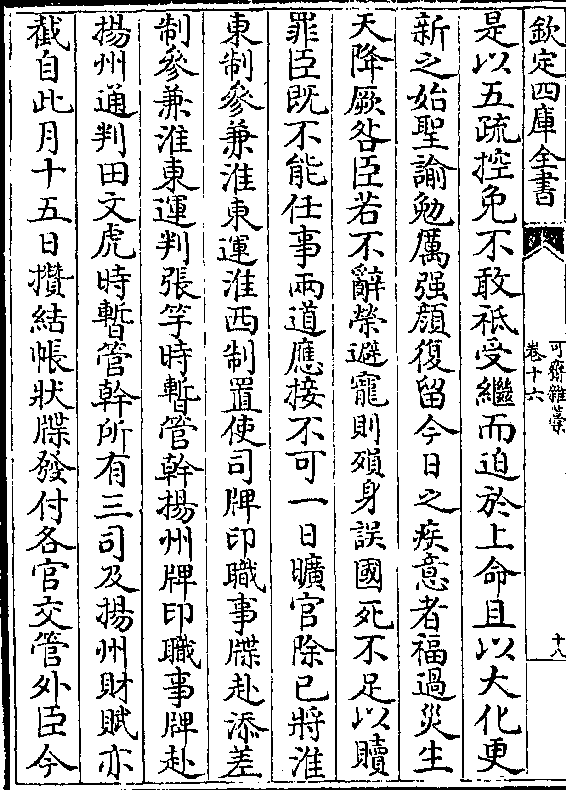 欽定四庫全書
可齋雜藁
卷十六
十八
是以五疏控免不敢祗受繼而迫於上命且以大化更
新之始聖諭勉厲强顔復留今日之疾意者福過災生
天降厥咎臣若不辭榮避寵則殞身誤國死不足以贖
罪臣既不能任事兩道應接不可一日曠官除已將淮
東制參兼淮東運淮西制置使司牌印職事牒赴添差
制參兼淮東運判張竽時暫管幹揚州牌印職事牌赴
揚州通判田文虎時暫管幹所有三司及揚州財賦亦
截自此月十五日攢結帳狀牒發付各官交管外臣今